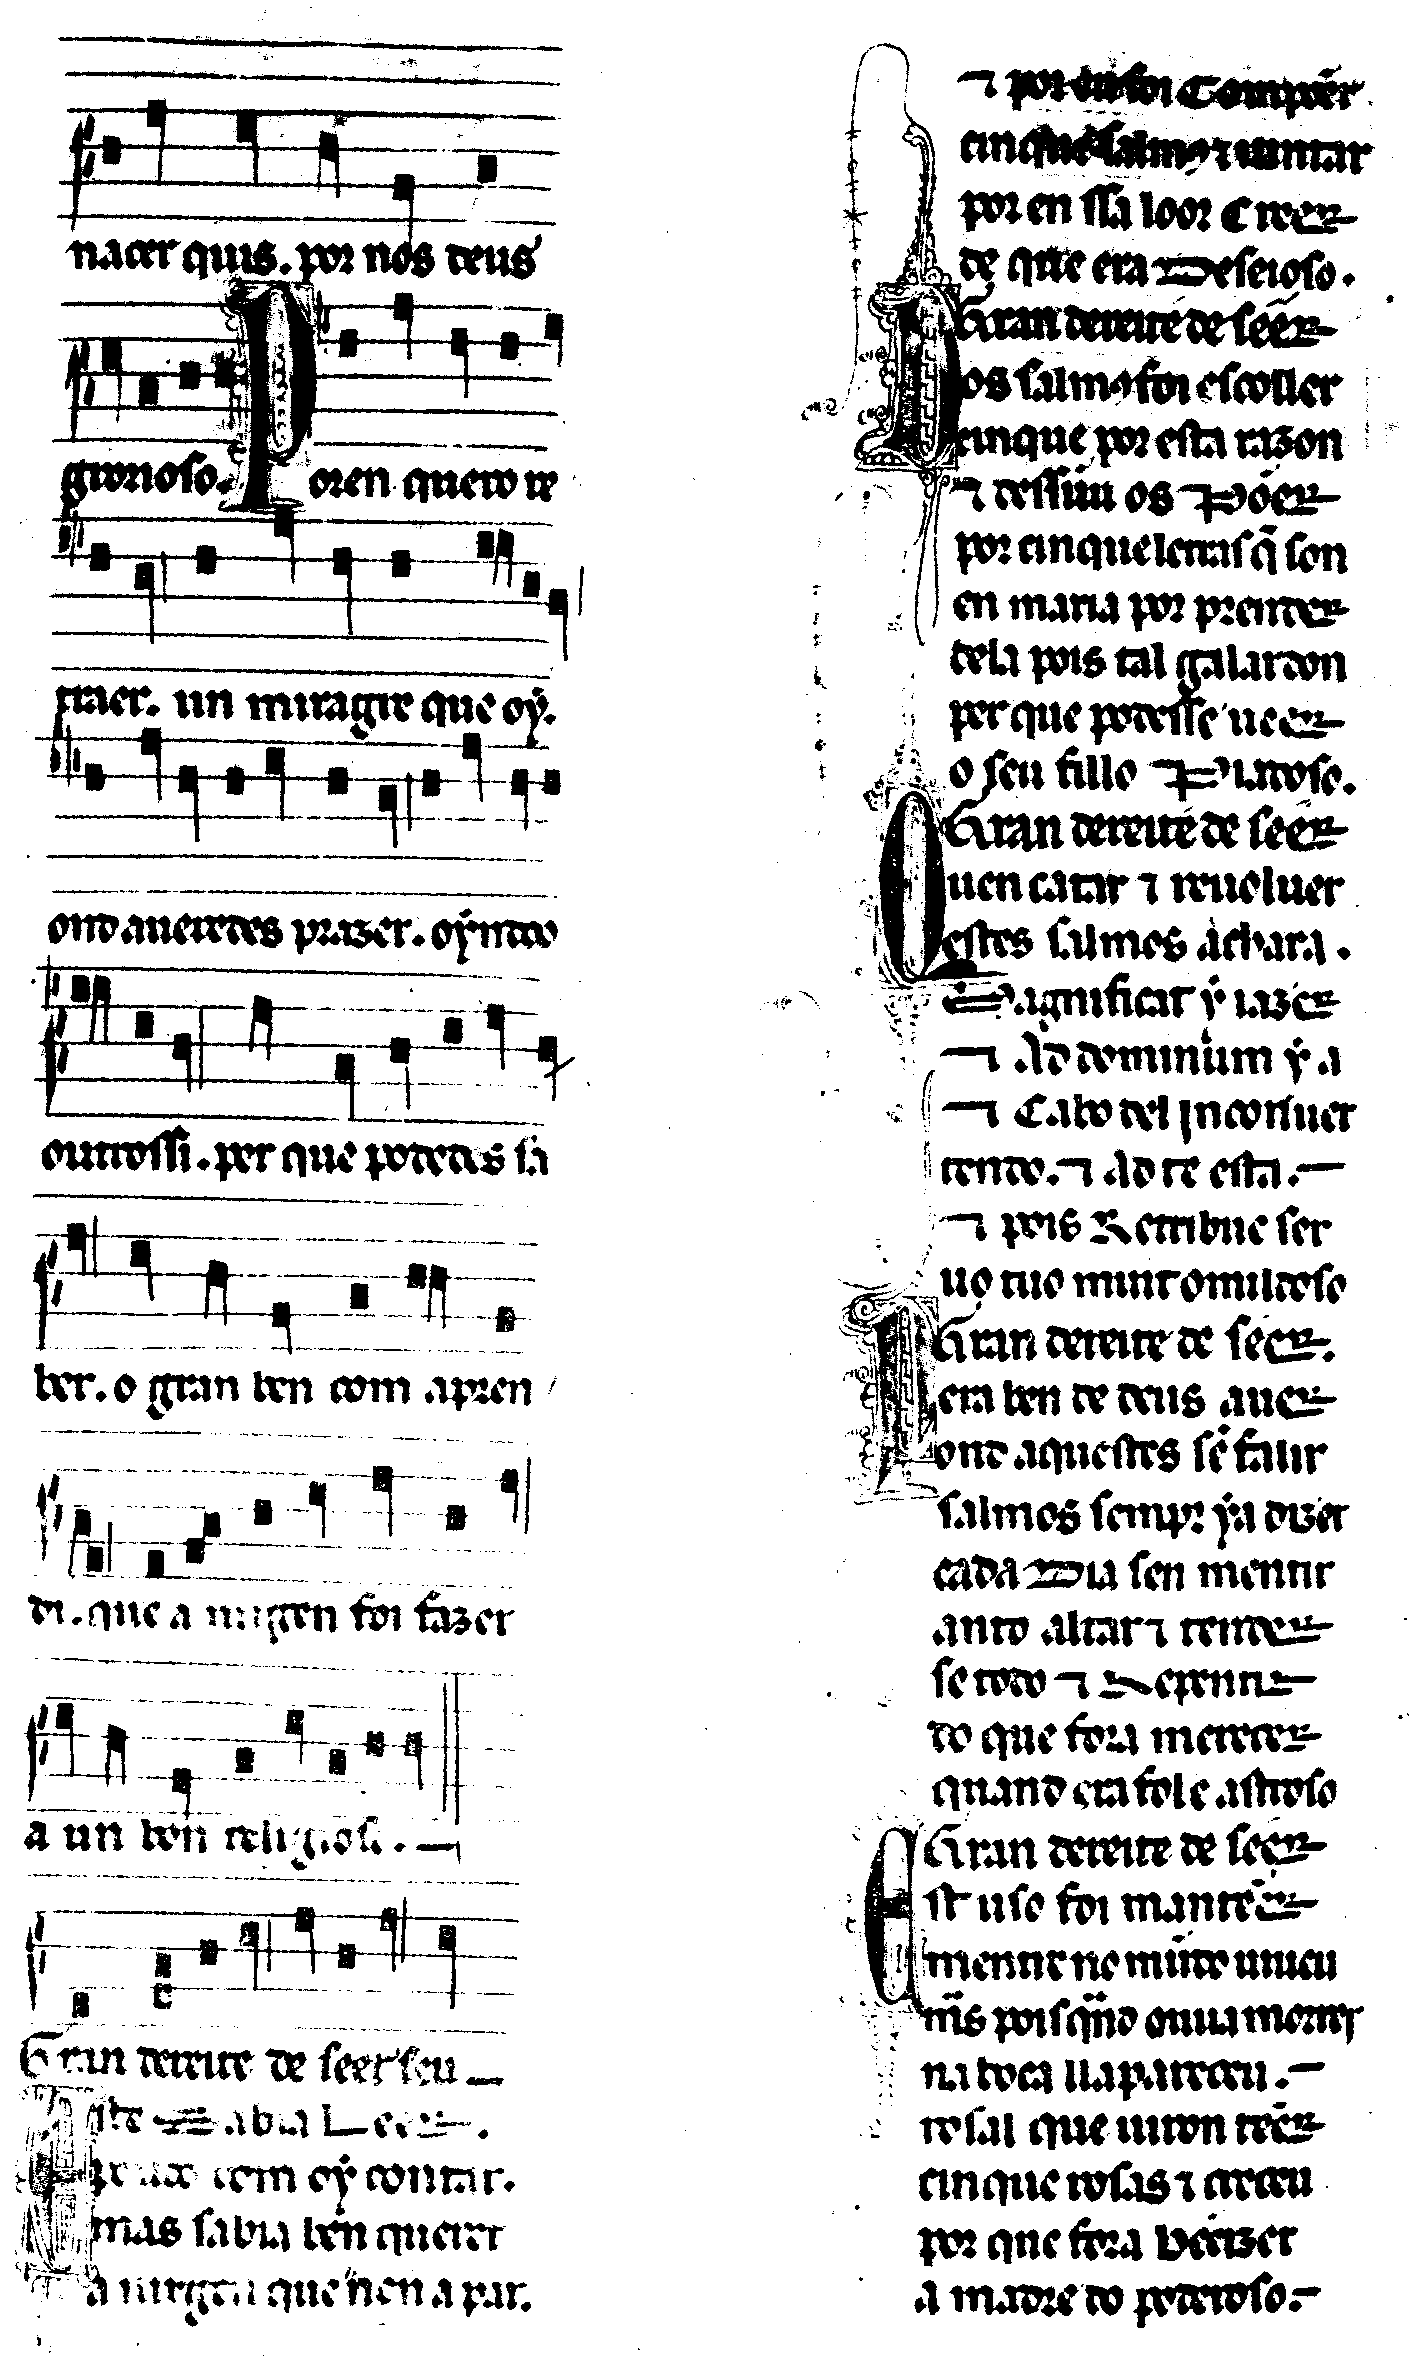 nacer quis. por nos deus
grorioso. Poren quero re
traer. un miragre que oý.
ond aueredes prazer. oýndoo
outrossi. per que podedes sa
ber. o gran ben com apren
di. que a uirgen foi fazer
a un bon religioso.
Gran dereite de seer seu
sabia Leer.
com oý contar.
mas sabia ben querer
a uirgen que nen a par.
⁊ por foi Compõer
cinque salmos ⁊ iuntar
por en ssa loor Creer
de que era Deseioso.
Gran dereite de seer
Dos salmos foi escoller
cinque por esta razon
⁊ dessũu os Põer
por cinque letras q̃ son
en maria por prender
dela pois tal galardon
per que podesse ueer
o seu fillo Piadoso.
Gran dereite de seer
Quen catar ⁊ reuoluer
estes salmos achara.
Magnificat ý iazer
⁊ Ad dominum ý a
⁊ Cabo del Jn conuer
tendo. ⁊ Ad te esta.
⁊ pois Retribue ser
uo tuo muit omildoso
Gran dereite de seer.
Pera ben de deus auer
ond aquestes sẽ falir
salmos sempr ýa dizer
cada Dia sen mentir
anto altar ⁊ tender
se todo ⁊ Repentir
do que fora merecer
quand era fol e astroso
Gran dereite de seer
Est uso foi mantẽer
mentre no mũdo uiueu
mas pois quãd ouu a morrer
na boca ll apareceu.
rosal que uiron tẽer
cinque rosas ⁊ creceu
por que fora bẽeizer
a madre do poderoso.